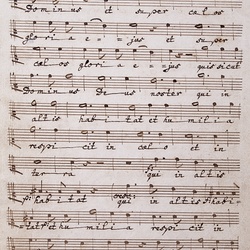 Dominus et super cælos
gloria e - - jus et super
cælos gloria e - - jus quis sicut
Dominus Deus noster qui in
altis habitat et humilia
respicit in cælo et in
terra qui in altis
habitat qui in altis habi-
tat et humilia respicit in